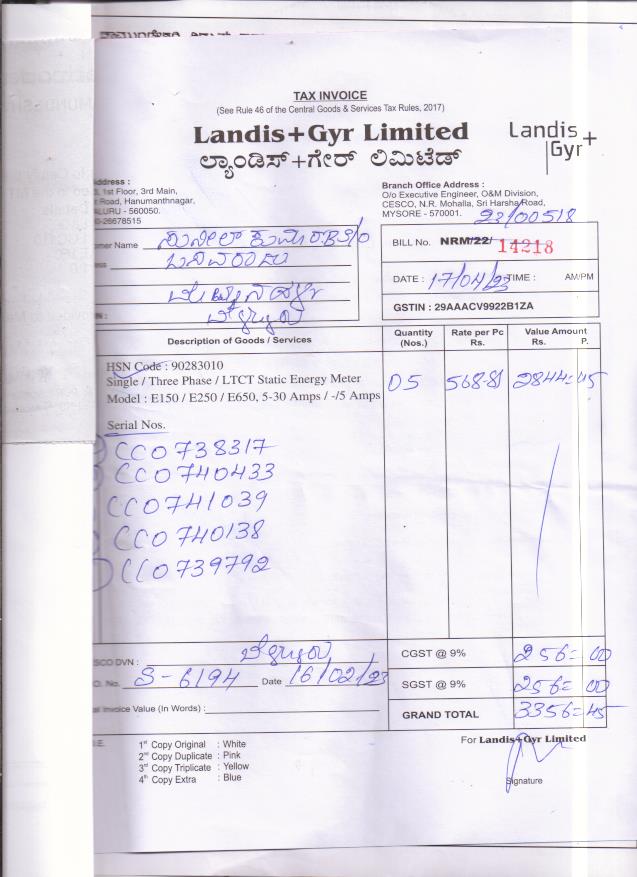 TAX INVOICE
(See Rule 46 of the Central Goods & Services Tax Rules, 2017)
Landis+Gyr Limited
ಲ್ಯಾಂಡಿಸ್+ಗೇರ್ ಲಿಮಿಟೆಡ್
Landis+
Gyr
ddress :
, 1st Floor, 3rd Main,
r Road, Hanumanthnagar,
ALURU - 560050.
0-26678515
Branch Office Address :
O/o Executive Engineer, O&M Division,
CESCO, N.R. Mohalla, Sri Harsha Road,
MYSORE - 570001.
23/00518
omer Name
ess
BILL No. NRM/22/ 14218
DATE : 17/04/23 TIME : AM/PM
GSTIN : 29AAACV9922B1ZA
Description of Goods / Services
Quantity (Nos.)
Rate per Pc Rs.
Value Amount Rs. P.
HSN Code : 90283010
Single / Three Phase / LTCT Static Energy Meter
Model : E150 / E250 / E650, 5-30 Amps / -/5 Amps
05 568-81 2844=05
Serial Nos.
CC0738317
CC0740433
CC0741039
CC0740138
CC0739792
SCO DVN :
O. No. S-6194 Date 16/02/23
al Invoice Value (In Words) :
CGST @ 9% 256=00
SGST @ 9% 256=00
GRAND TOTAL 3356=45
1st Copy Original : White
2nd Copy Duplicate : Pink
3rd Copy Triplicate : Yellow
4th Copy Extra : Blue
For Landis+Gyr Limited
Signature